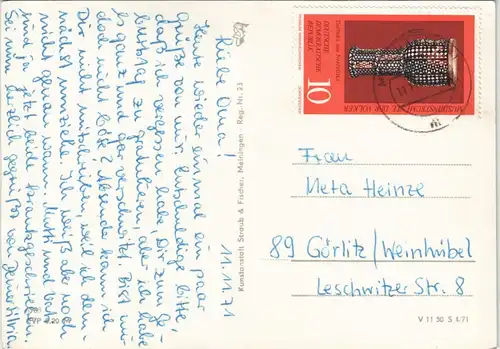 11.11.71
Liebe Oma!
Heute wieder einmal ein paar
Grüße von mir. Entschuldige bitte,
daß ich vergessen habe Dir zum Ge-
burtstag zu gratulieren, aber ich habe
es ganz und gar verschwitzt. Bist mir
doch nicht böse? Absender kann ich
Dir nicht mitschreiben, weil ich dem-
nächst umziehe. Ich weiß aber noch
nicht genau wann. Mutti und Vati
sind ja jetzt beide herausgeschmissen.
Sei nun herzlich gegrüßt von
Deiner Silvia
Kunstanstalt Straub & Fischer, Meiningen - Reg.-Nr. 23
EVP 0,20
DEUTSCHE
DEMOKRATISCHE
REPUBLIK
10
MUSIKINSTRUMENTE DER VÖLKER
Frau
Meta Heinze
89 Görlitz/Weinhübel
Leschwitzer Str. 8
V 11 50 S 1/71